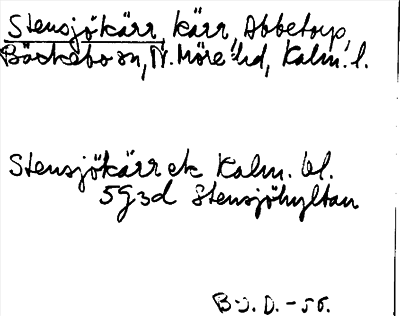 Stensjökärr, kärr, Abbetorp,
Bäckebo sn, N. Möre hd, Kalm. l.
Stensjökärr ek Kalm. bl.
5G3d Stensjöhyltan
B-J. D. -56.